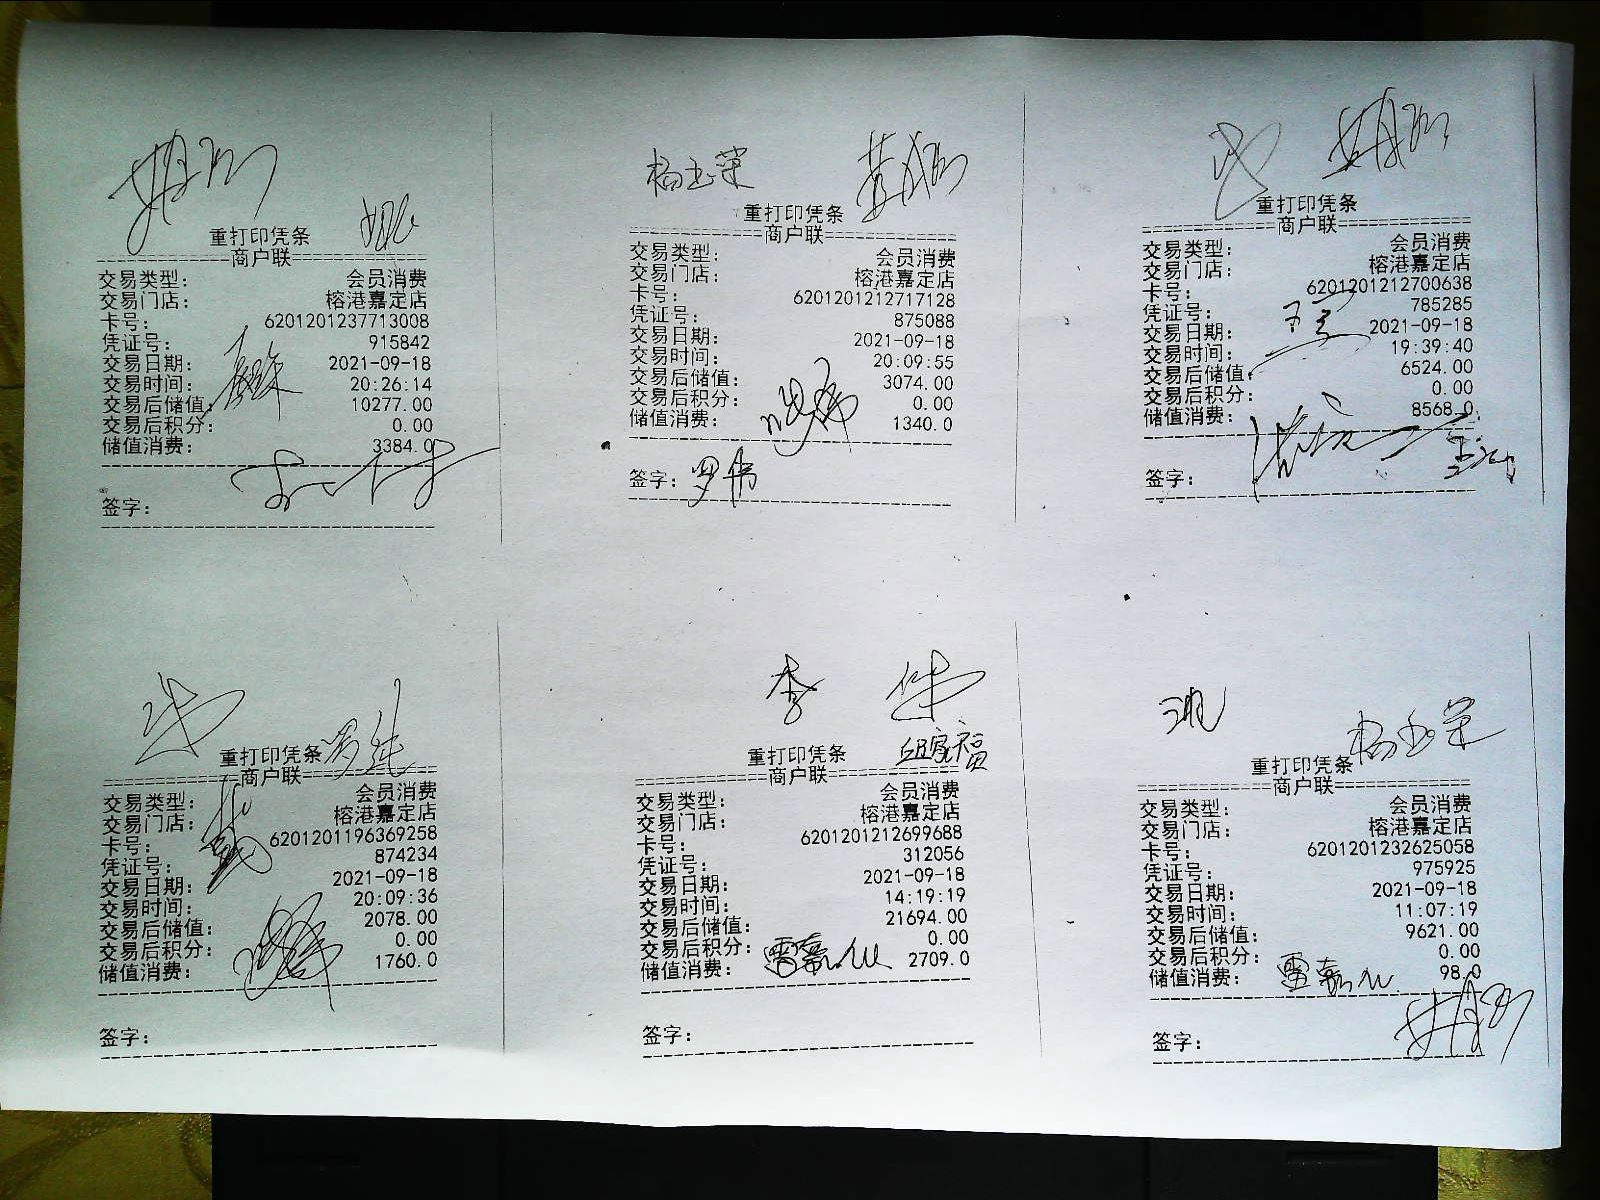 重打印凭条
商户联
交易类型： 会员消费
交易门店： 榕港嘉定店
卡号： 6201201237713008
凭证号： 915842
交易日期： 2021-09-18
交易时间： 20:26:14
交易后储值： 10277.00
交易后积分： 0.00
储值消费： 3384.0
签字：
杨玉荣
重打印凭条
商户联
交易类型： 会员消费
交易门店： 榕港嘉定店
卡号： 6201201212717128
凭证号： 875088
交易日期： 2021-09-18
交易时间： 20:09:55
交易后储值： 3074.00
交易后积分： 0.00
储值消费： 1340.0
签字： 罗伟
重打印凭条
商户联
交易类型： 会员消费
交易门店： 榕港嘉定店
卡号： 6201201212700638
凭证号： 785285
交易日期： 2021-09-18
交易时间： 19:39:40
交易后储值： 6524.00
交易后积分： 0.00
储值消费： 8568.0
签字：
重打印凭条
商户联
交易类型： 会员消费
交易门店： 榕港嘉定店
卡号： 6201201196369258
凭证号： 874234
交易日期： 2021-09-18
交易时间： 20:09:36
交易后储值： 2078.00
交易后积分： 0.00
储值消费： 1760.0
签字：
李
邱家福
重打印凭条
商户联
交易类型： 会员消费
交易门店： 榕港嘉定店
卡号： 6201201212699688
凭证号： 312056
交易日期： 2021-09-18
交易时间： 14:19:19
交易后储值： 21694.00
交易后积分： 0.00
储值消费： 2709.0
签字：
杨玉荣
重打印凭条
商户联
交易类型： 会员消费
交易门店： 榕港嘉定店
卡号： 6201201232625058
凭证号： 975925
交易日期： 2021-09-18
交易时间： 11:07:19
交易后储值： 9621.00
交易后积分： 0.00
储值消费： 98.0
签字：